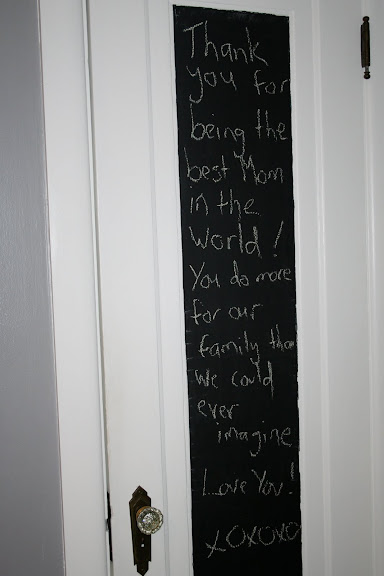 Thank
you for
being the
best Mom
in the
world!
You do more
for our
family than
we could
ever
imagine
Love You!
XOXOXO